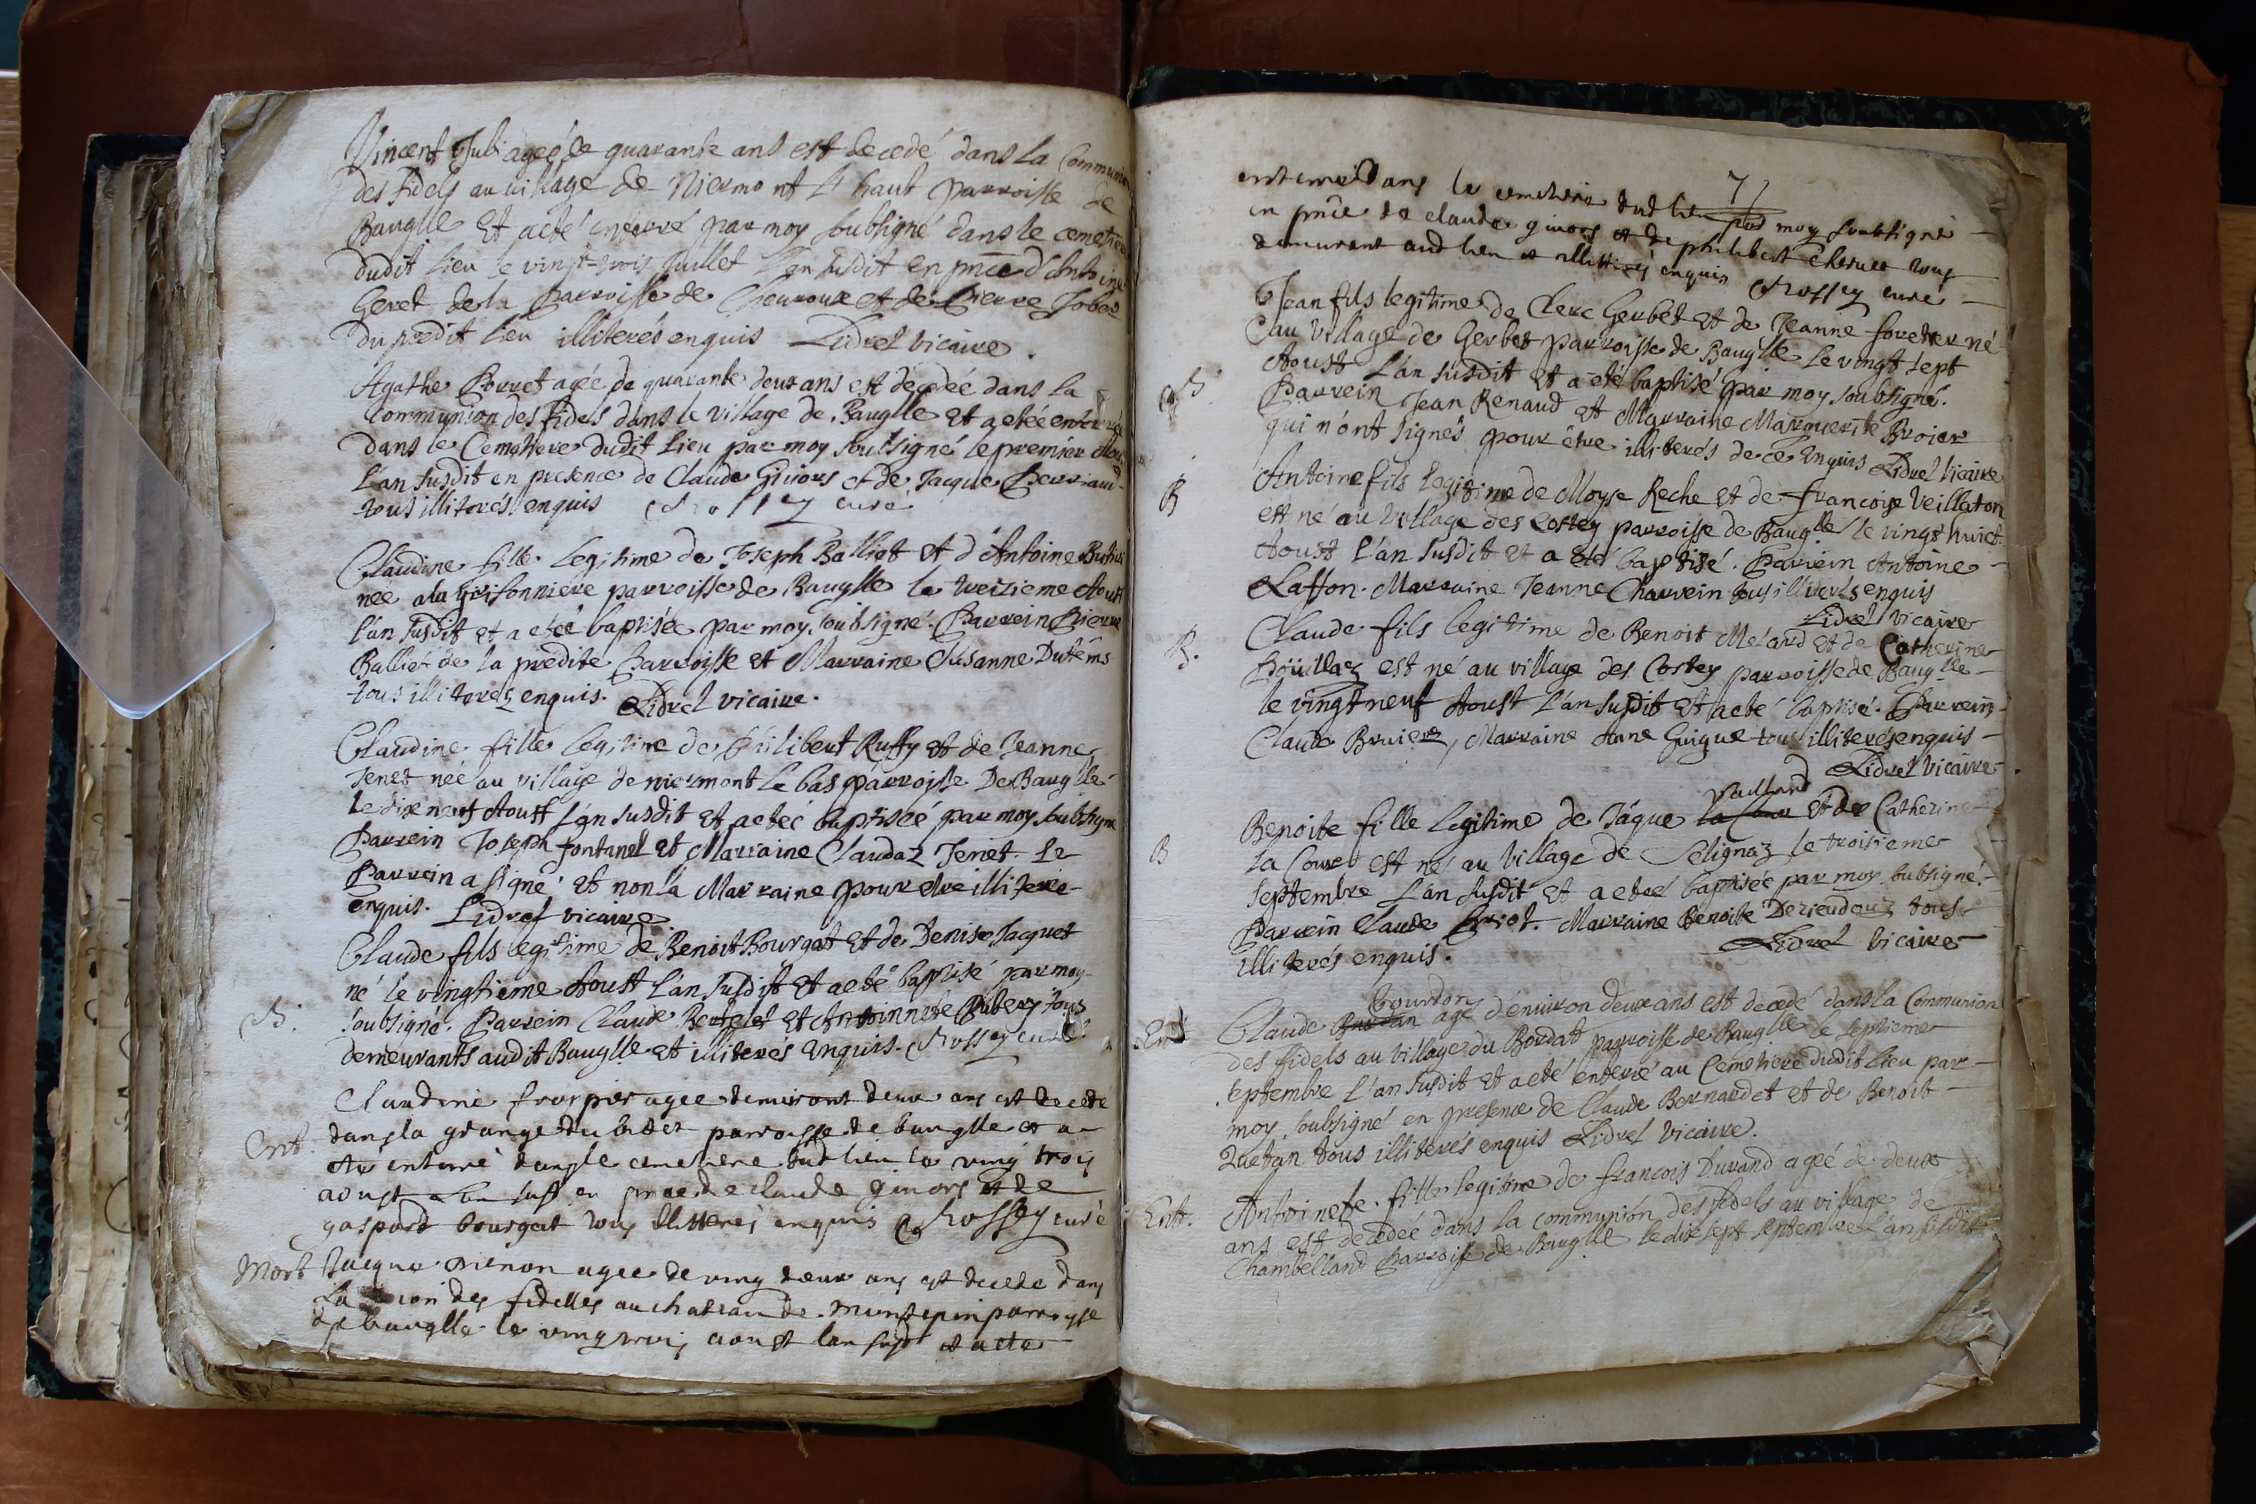 Vincent Jubi ageé de quarante ans est decedé dans la Communion
des fidels au village de Niermont le haut parroisse de
Bauglle et a eté enterré par moy soubsigné dans le cemetiere
dudit lieu le vingt-trois juillet l'an susdit en pñce d'Antoine
Geret de la Parroisse de Cheuroux et de Pierre Jober
du predit lieu illiterés enquis Lidrel vicaire.
Agathe Porret agée de quarante deux ans est decedeé dans la
Communion des fidels dans le village de Bauglle et a eteé enterreé
dans le Cemetiere dudit lieu par moy soubsigné le premier Aoust
l'an susdit en presence de Claude Givors et de Jacque Perriaud
tous illiterés enquis Rossey curé
Claudine fille legitime de Joseph Balliot et d'Antoine
neé a la grisonniere parroisse de Bauglle le treizieme Aoust
l'an susdit et a eteé baptiseé par moy soubsigné. Parrein Pierre
Balliot de la predite Parroisse et Marraine Susanne Dutêms
tous illiterez enquis. Lidrel vicaire.
Claudine fille legitime de Philibert Ruffy et de Jeanne
Jenet neé au village de niermont le bas parroisse De Bauglle
le dixneuf Aoust l'an susdit et a eteé baptiseé par moy soubsigné
Parrein Joseph fontanel et Marraine Claudaz Jenet. Le
Parrein a signé et non la Marraine pour etre illitereé
enquis. Lidrel vicaire
Claude fils legitime de Benoit Bourgat et de Denise Jacquet
né le vingtieme Aoust l'an susdit et a eté baptisé par moy
B. soubsigné. Parrein Claude et Antoinete Pubery tous
demeurants audit Bauglle et illiterés enquis. Rossey curé
Claudine agee denviront deux ans est decedé
Ent. dans la grange du parroisse de bauglle et a
eté enterré dans le cemetiere dud lieu le ving trois
aoust lan susd en pnce de claude givors et de
gaspard bourgat tous illitterés enquis Rossey curé
Mort Jacque agee de ving deux ans est decede dans
La des fidelles au chateau de montepin parroysse
de bauglle le ving trois aoust lan susd et a ete
7
enterré dans le cemetiere dud lieu par moy soubsigné
en pñce de claude givors et de philibert tous
demeurant aud lieu et illitterés enquis Rossey curé
Jean fils legitime de Clerc Gerbet et de Jeanne foretier né
au village de Gerbet parroisse de Bauglle le vingt sept
B. Aoust l'an susdit et a eté baptisé par moy soubsigné.
Parrein Jean Renaud et Marraine Marguerite Broier
qui n'ont signés pour être illiterés de ce Enquis Lidrel vicaire
B Antoine fils legitime de Moyse Reche et de francoise Veillaton
est né au village des Costey parroisse de Baug.lle le vingt huict
Aoust l'an susdit et a eté baptisé. Parrein Antoine
Laffon. Marraine Jeanne Chauvein tous illiterés enquis
Lidrel vicaire
B. Claude fils legitime de Benoit Meaud et de Catherine
Boüillaz est né au village des Costey parroisse de Baug.lle
le vingt neuf Aoust l'an susdit et a eté baptisé. Parrein
Claude Bruiere, Marraine Anne Guigue tous illiterés enquis
Lidrel vicaire
paillard
B Benoite fille legitime de Jaque la Cour et de Catherine
la Cour est né au village de Selignaz le troisieme
Septembre l'an susdit et a eteé baptiseé par moy soubsigné.
Parrein Claude Briot. Marraine Benoite tous
illiterés enquis. Lidrel vicaire
bourdon
Ent Claude Burdan agé d'environ deux ans est decedé dans la Communion
des fidels au village du Bordat parroisse de Bauglle le septieme
septembre l'an susdit et a eté enterré au Cemetiere dudit lieu par
moy soubsigné en presence de Claude Bernardet et de Benoit
Quetan tous illiterés enquis Lidrel vicaire.
Entt. Antoinete fille legitime de francois Durand ageé de deux
ans est decedeé dans la communion des fidels au village de
Chambelland Parroisse de Bauglle le dix sept septembre l'an susdit